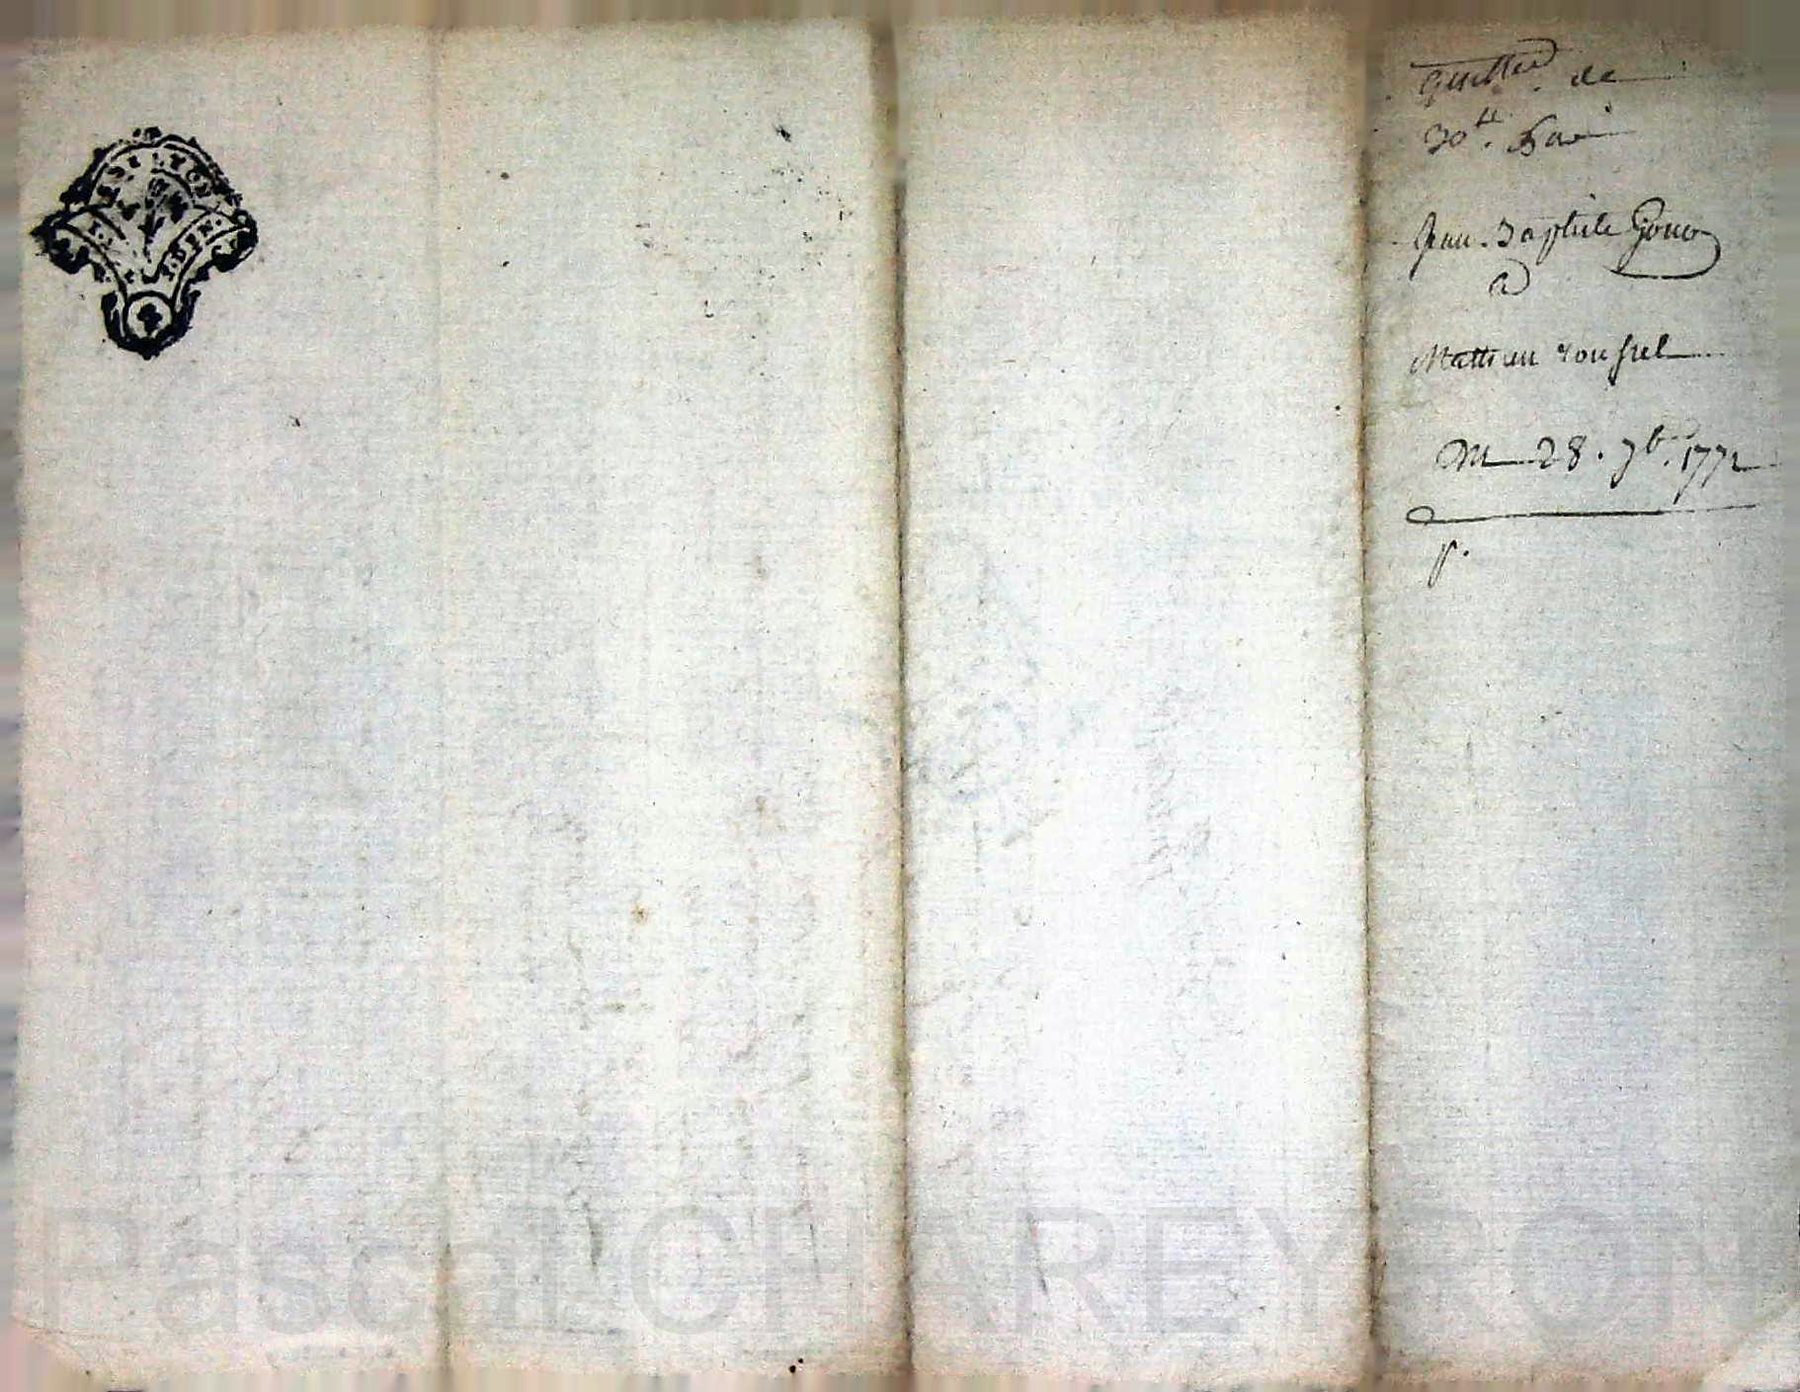 Quittce. de
30 tt. par
Jean Baptiste Gono
a
Mattieu roussel
Du 28. 7b. 1772
p.
Pascal CHAREYRON